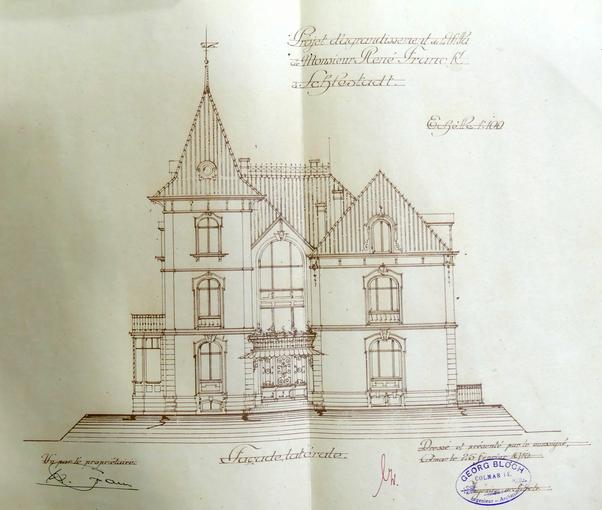 Projet d'agrandissement de la Villa
de Monsieur René Franck
à Schlestadt.
Echelle 1:100
Façade latérale.
Vu par le propriétaire:
Dressé et présenté par le soussigné,
Colmar le Février 1910
GEORG BLOCH
COLMAR i.E.
Ingenieur - Architekt